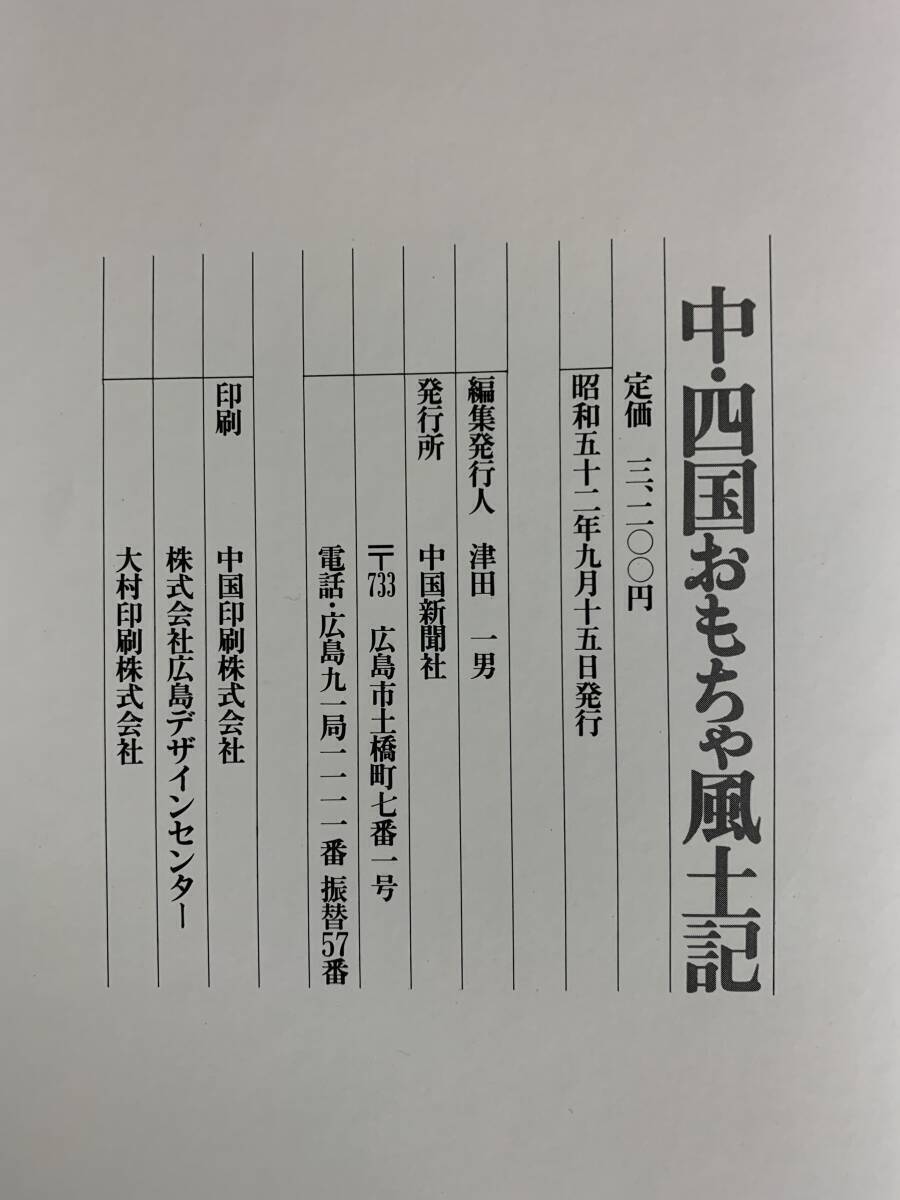 中・四国おもちゃ風土記
定価 三、二〇〇円
昭和五十二年九月十五日発行
編集発行人 津田 一男
発行所 中国新聞社
〒733 広島市土橋町七番一号
電話・広島九一局一一一一番 振替57番
印刷 中国印刷株式会社
株式会社広島デザインセンター
大村印刷株式会社